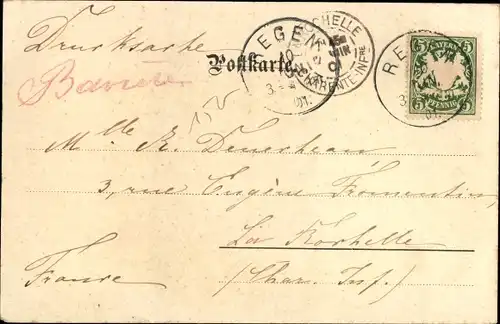 Drucksache
Bavière
Postkarte
REGEN
3
01.
LA ROCHELLE
CHARENTE-INFRE
REGEN
3
01.
5 5
BAYERN
PFENNIG
5 5
Mlle R.
3, rue Eugène Fromentin,
La Rochelle
France
(Char. Inf.)